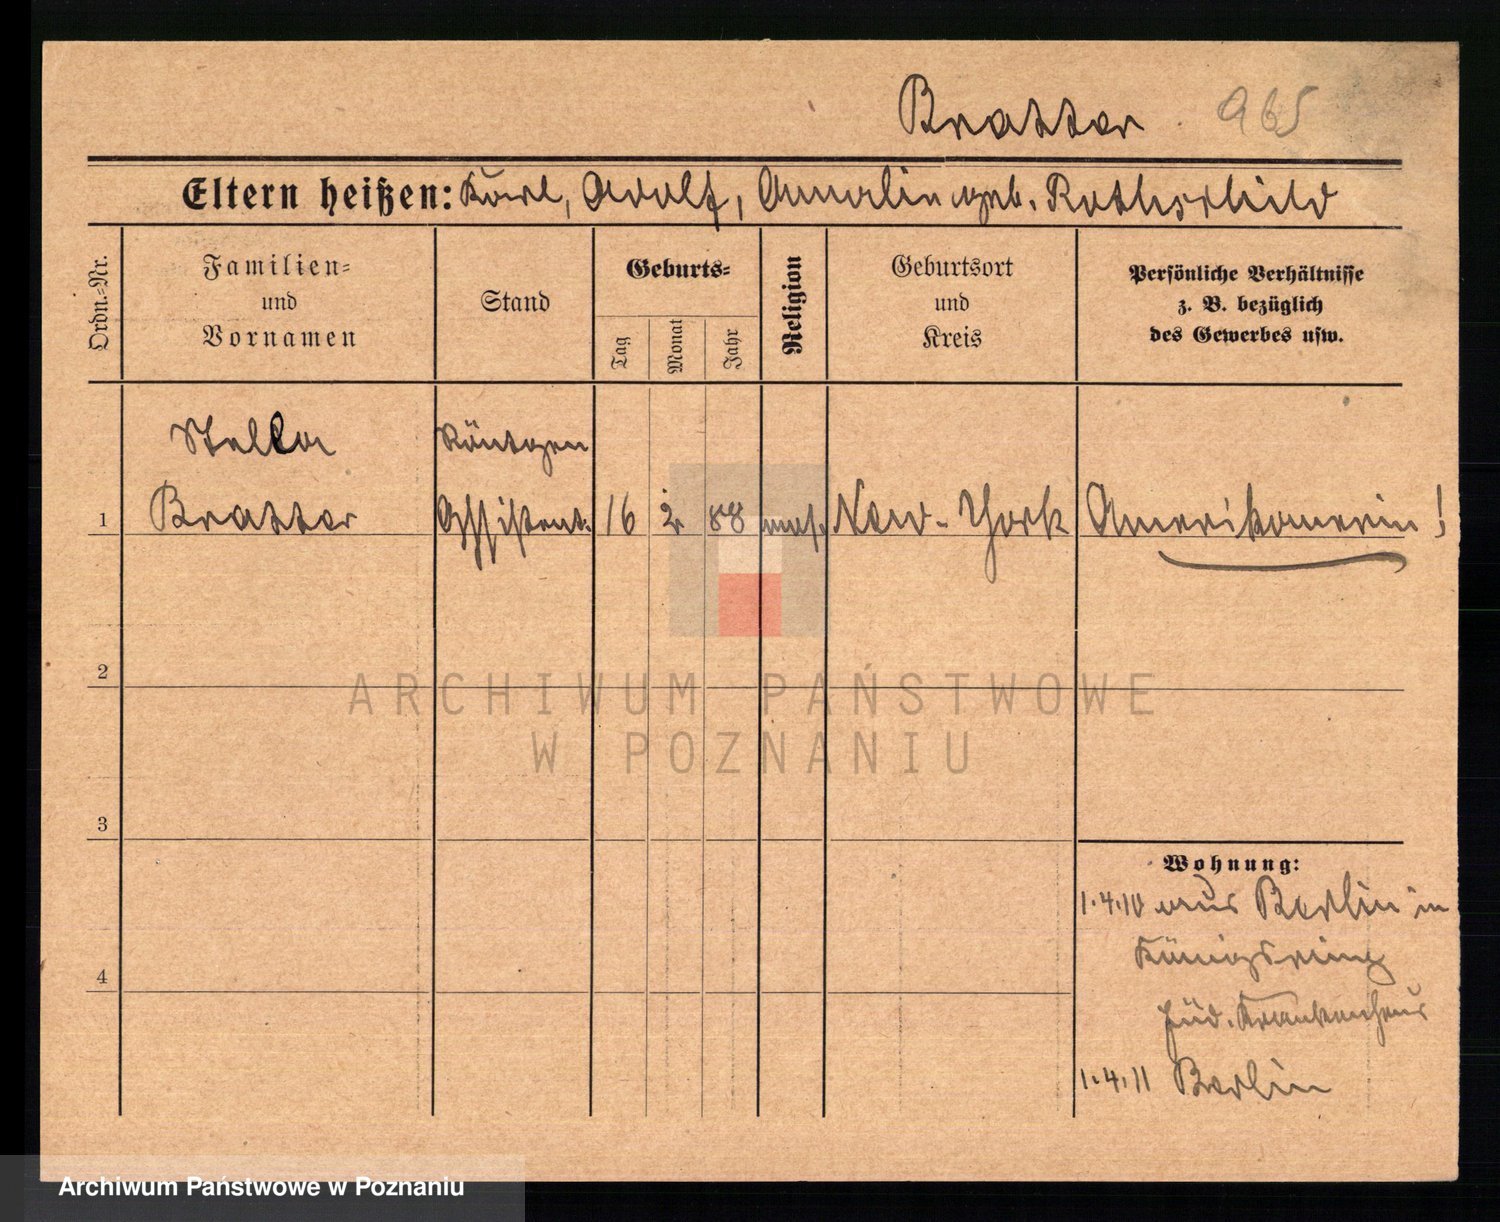 Bratter 965
Eltern heißen: Karl, Adolf, Amalie geb. Rothschild
Ordn.-Nr.
Familien-
und
Vornamen
Stand
Geburts-
Tag
Monat
Jahr
Religion
Geburtsort
und
Kreis
Persönliche Verhältnisse
z. B. bezüglich
des Gewerbes usw.
Stella Röntgen
1 Bratter Assistent. 16 2 88 mos. New-York Amerikanerin!
2
ARCHIWUM PAŃSTWOWE
W POZNANIU
3
Wohnung:
1.4.10 aus Berlin in
4 Königsring
Jüd. Krankenhaus
1.4.11 Berlin
Archiwum Państwowe w Poznaniu